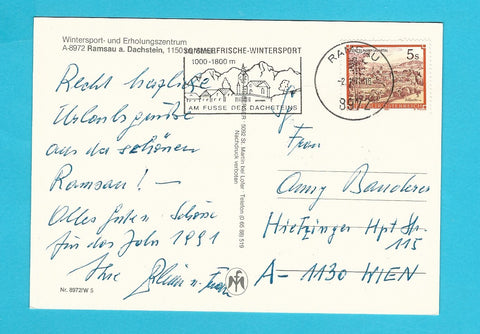 Wintersport- und Erholungszentrum
A-8972 Ramsau a. Dachstein, 1150 m
SOMMERFRISCHE-WINTERSPORT
1000-1800 m
AM FUSSE DES DACHSTEINS
RAMSAU
8972
5 S
Recht herzliche
Urlaubsgrüße
aus der schönen
Ramsau! —
Alles Gute u. Schöne
für das Jahr 1991
Ihre
Fam
Nr. 8972/W 5
5092 St. Martin bei Lofer Telefon (0 65 88) 519
Nachdruck verboten
Frau
Anny
Hietzinger Hpt Str.
115
A- 1130 WIEN